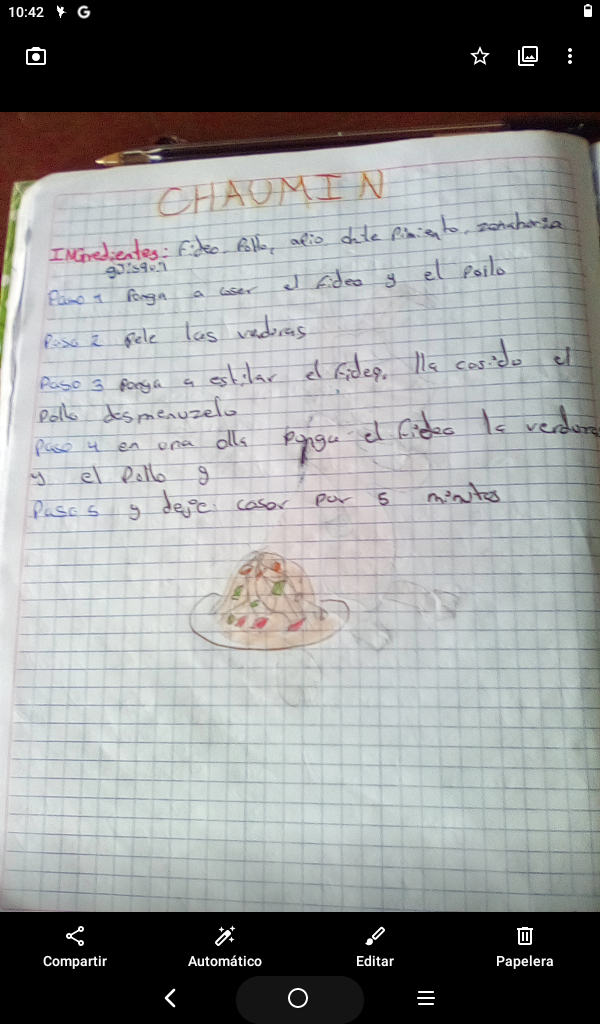 10:42
CHAUMIN
INGredientes: Fideo. Pollo, apio chile Pimiento, zanahoria
güisquil
Paso 1 Ponga a coser el Fideo y el pollo
Paso 2 pele las verduras
Paso 3 ponga a estilar el Fideo. lla cosido el
Pollo desmenuzelo
Paso 4 en una olla ponga el Fideo la verdura
y el Pollo y
Paso 5 y deje coser por 5 minutos
Compartir
Automático
Editar
Papelera